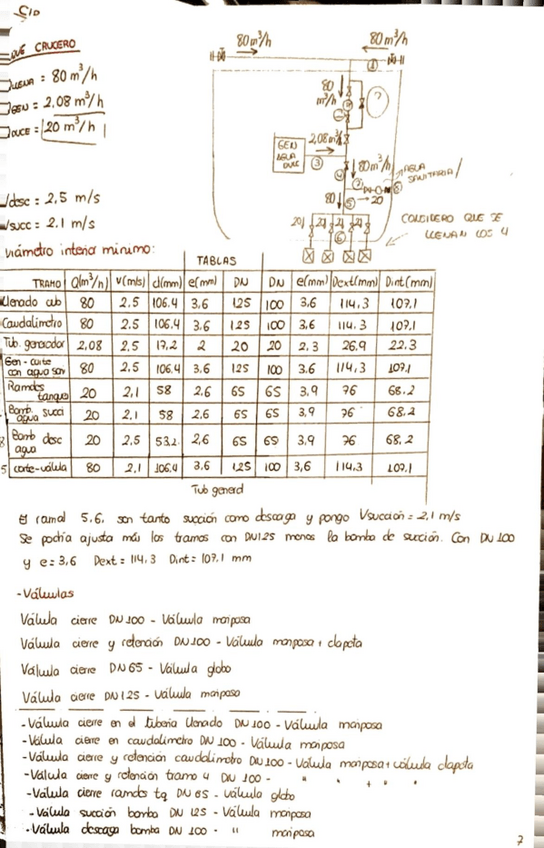 C10
QUE CRUCERO
LLENA = 80 m³/h
GEN = 2,08 m³/h
DUCE = 20 m³/h
Vdesc = 2,5 m/s
Vsucc = 2.1 m/s
80 m³/h
80 m³/h
1
80
m³/h
?
2,08 m³/h
GEN
AGUA
DULCE
3
4
80 m³/h
AGUA
SANITARIA
7
8
80
5
20
20
20
20
20
6
CONSIDERO QUE SE
LLENAN LOS 4
Diámetro interior mínimo:
TABLAS
TRAMO Q(m³/h) v(m/s) d(mm) e(mm) DN DN e(mm) Dext(mm) Dint(mm)
Llenado cub 80 2,5 106.4 3,6 125 100 3,6 114,3 107,1
Caudalímetro 80 2,5 106.4 3,6 125 100 3,6 114,3 107,1
Tub. generador 2,08 2,5 17,2 2 20 20 2,3 26,9 22.3
Gen-corte
con agua san 80 2,5 106.4 3,6 125 100 3,6 114,3 107,1
Ramales
tanques 20 2,1 58 2,6 65 65 3,9 76 68.2
Bomb. succi
agua 20 2,1 58 2,6 65 65 3,9 76 68.2
8 Bomb desc
agua 20 2,5 53,2 2,6 65 65 3,9 76 68,2
5 corte-válvula 80 2,1 106.4 3.6 125 100 3,6 114,3 107,1
Tub general
El ramal 5,6, son tanto succión como descarga y pongo Vsucción = 2,1 m/s
Se podría ajusta más los tramos con DN125 menos la bomba de succión. Con DN 100
y e = 3,6 Dext = 114,3 Dint = 107,1 mm
- Válvulas
Válvula cierre DN 100 - Válvula mariposa
Válvula cierre y retención DN 100 - Válvula mariposa + clapeta
Válvula cierre DN 65 - Válvula globo
Válvula cierre DN 125 - Válvula mariposa
- Válvula cierre en el tubería llenado DN 100 - Válvula mariposa
- Válvula cierre en caudalímetro DN 100 - Válvula mariposa
- Válvula cierre y retención caudalímetro DN 100 - Válvula mariposa + válvula clapeta
- Válvula cierre y retención tramo 4 DN 100 - " " + "
- Válvula cierre ramales tq DN 65 - válvula globo
- Válvula succión bomba DN 125 - Válvula mariposa
- Válvula descarga bomba DN 100 - " mariposa
7